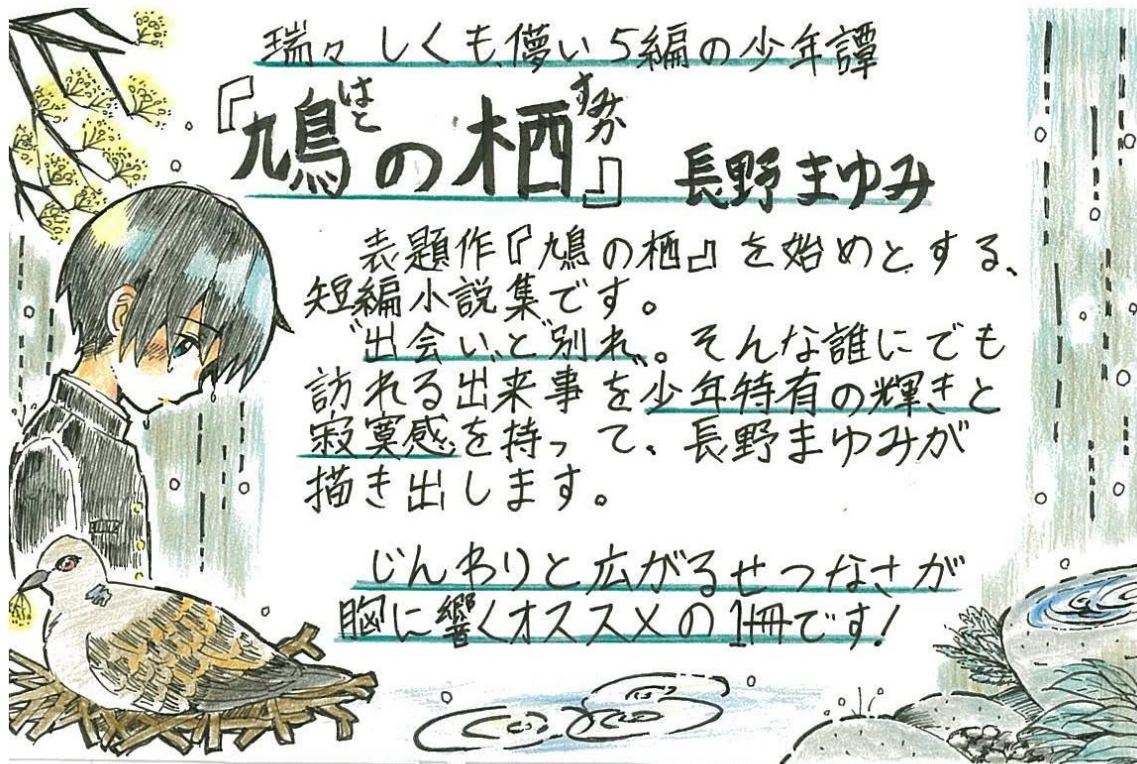 瑞々しくも儚い5編の少年譚
『鳩の栖』 長野まゆみ
はと すみか
表題作『鳩の栖』を始めとする、
短編小説集です。
"出会い"と"別れ"。そんな誰にでも
訪れる出来事を少年特有の輝きと
寂寞感を持って、長野まゆみが
描き出します。
じんわりと広がるせつなさが
胸に響くオススメの1冊です!